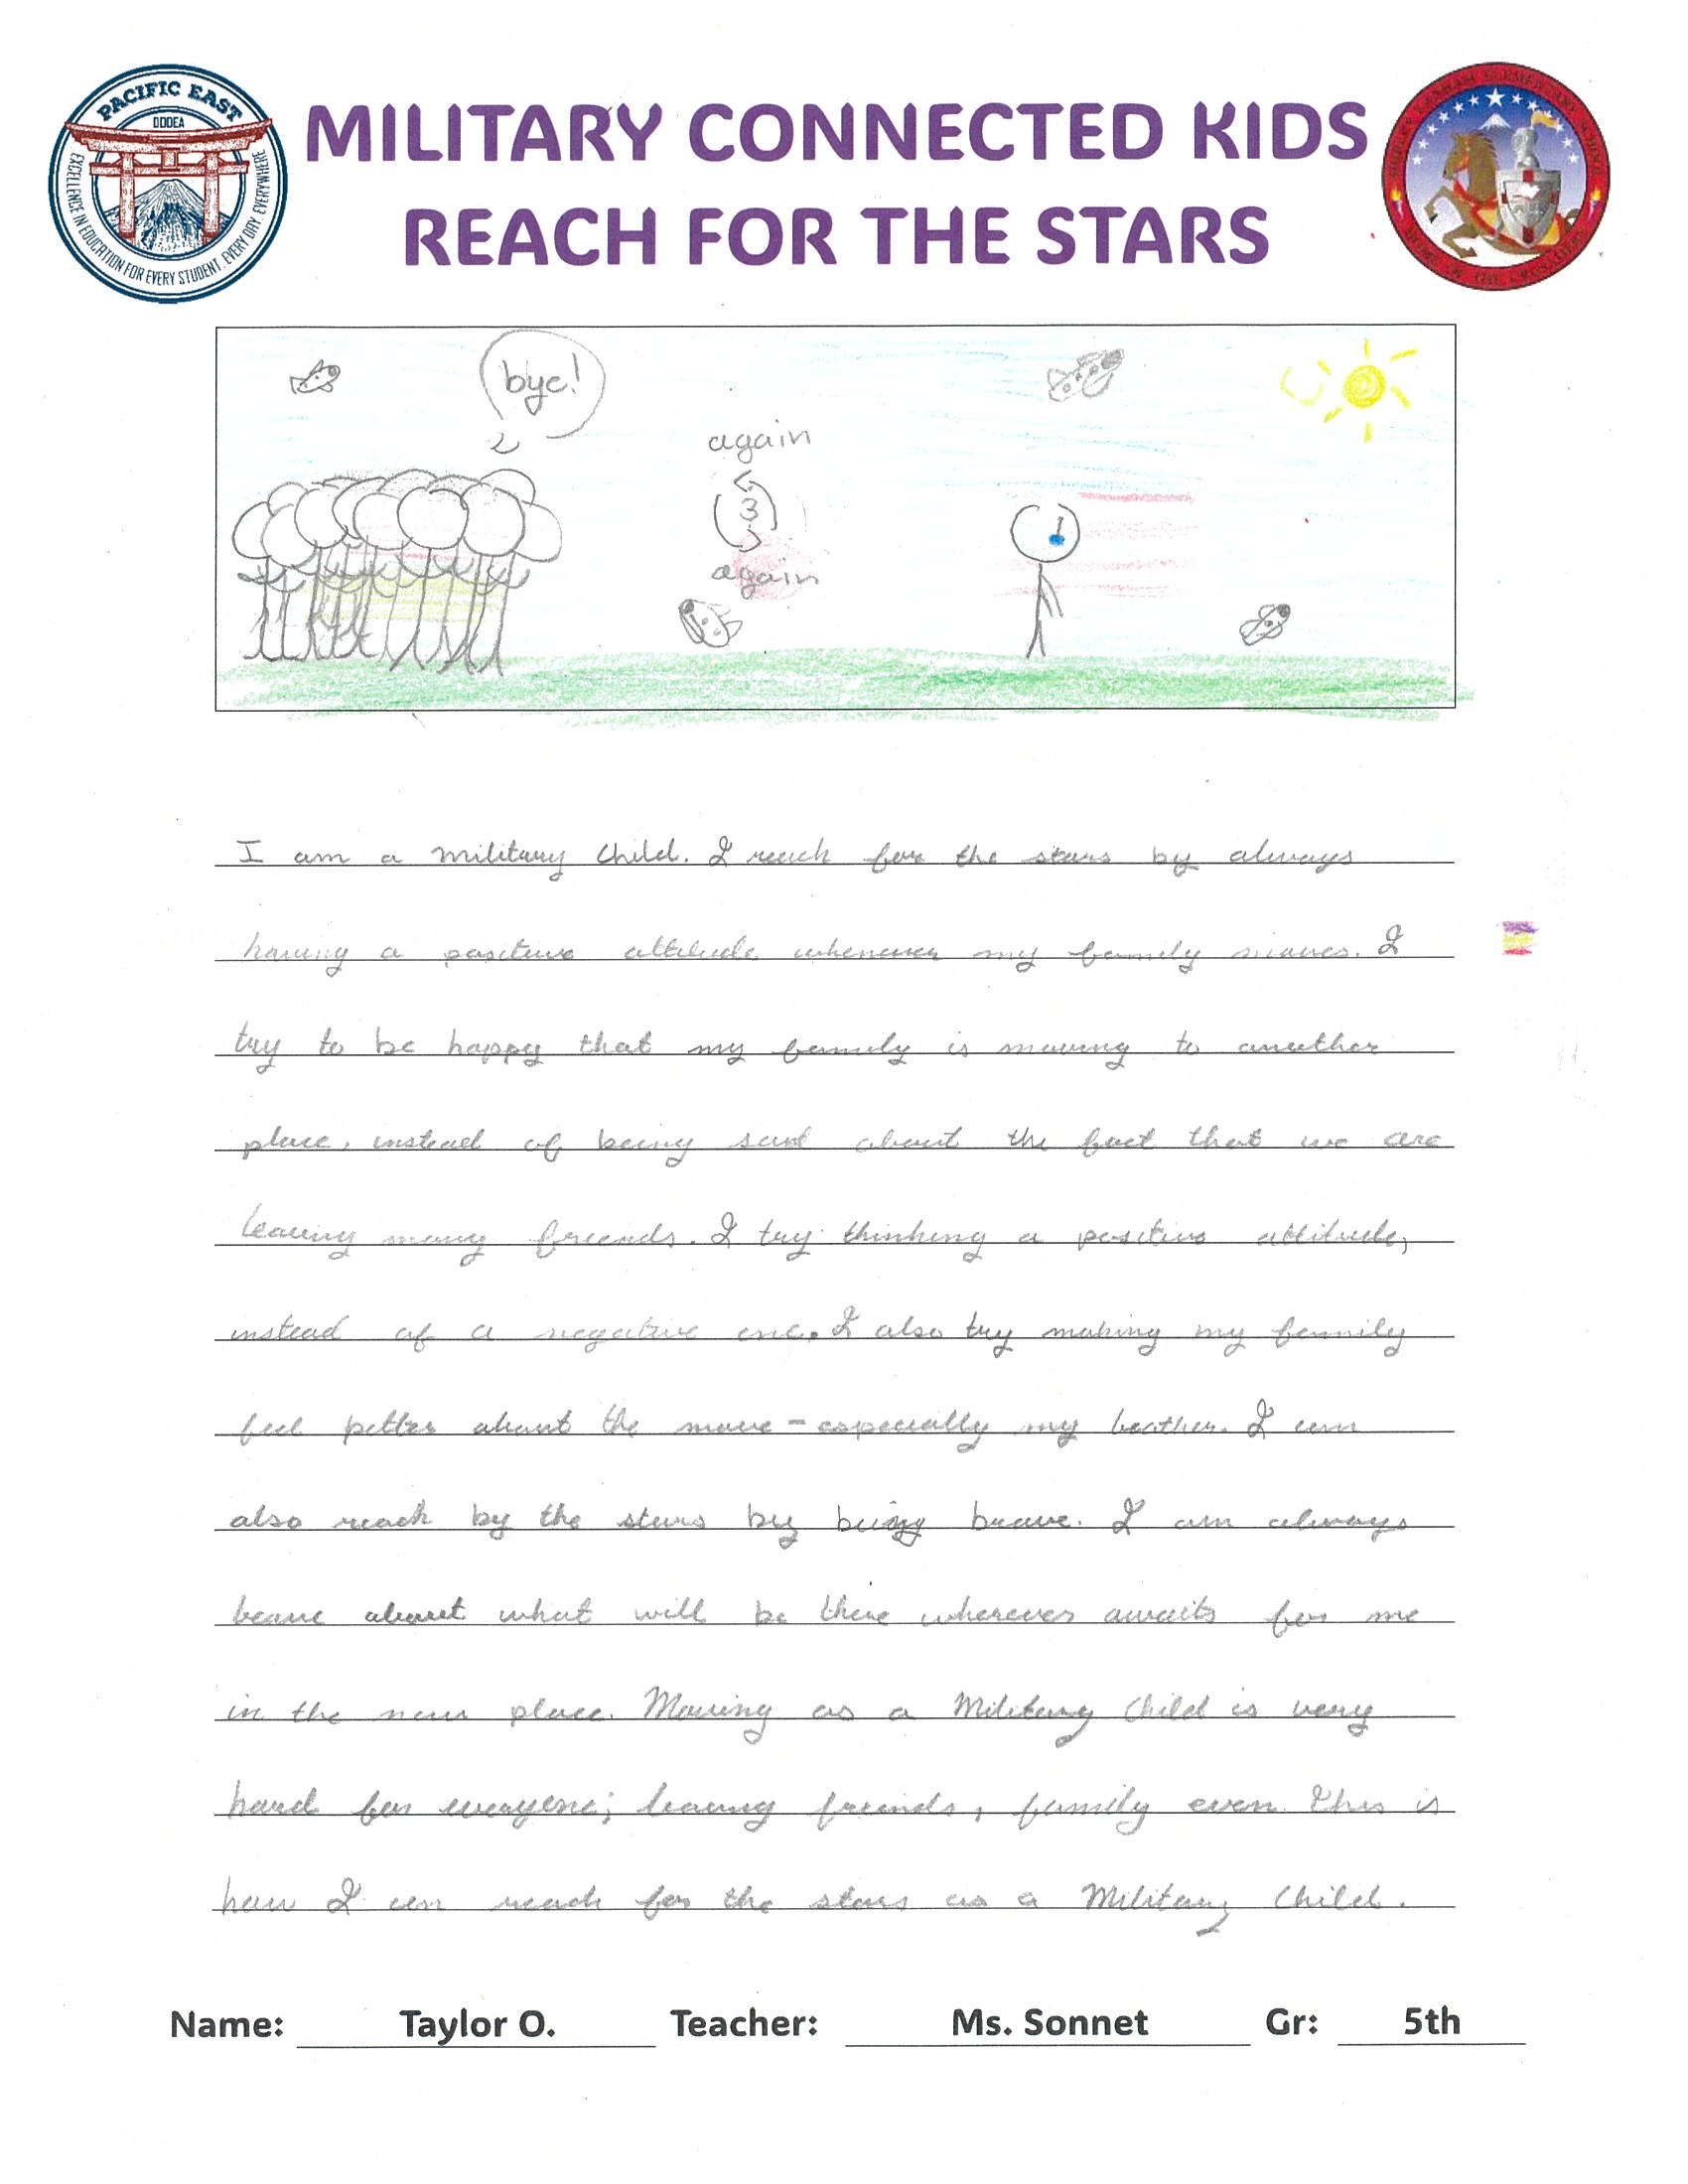 PACIFIC EAST
DODEA
EXCELLENCE IN EDUCATION FOR EVERY STUDENT, EVERY DAY, EVERYWHERE
MILITARY CONNECTED KIDS
REACH FOR THE STARS
bye!
again
3
again
I am a military child. I reach for the stars by always
having a positive attitude whenever my family moves. I
try to be happy that my family is moving to another
place, instead of being sad about the fact that we are
leaving many friends. I try thinking a positive attitude,
instead of a negative one. I also try making my family
feel petter about the move - especially my brother. I can
also reach by the stars by being brave. I am always
brave about what will be there wherever awaits for me
in the new place. Moving as a Military Child is very
hard for everyone; leaving friends, family even. This is
how I can reach for the stars as a Military Child.
Name: Taylor O. Teacher: Ms. Sonnet Gr: 5th